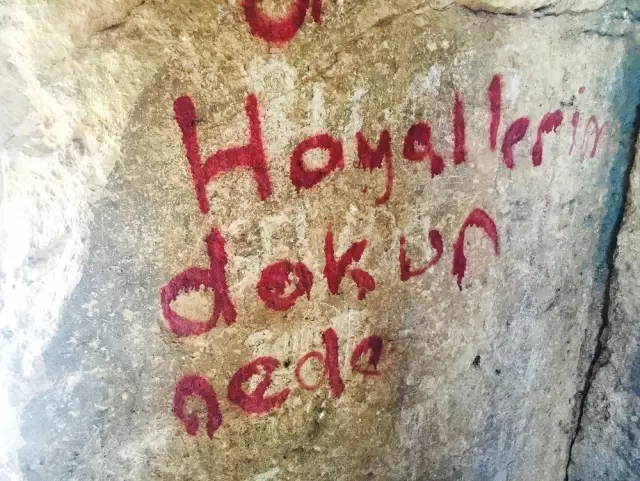 Hayallerin
dokun
nede